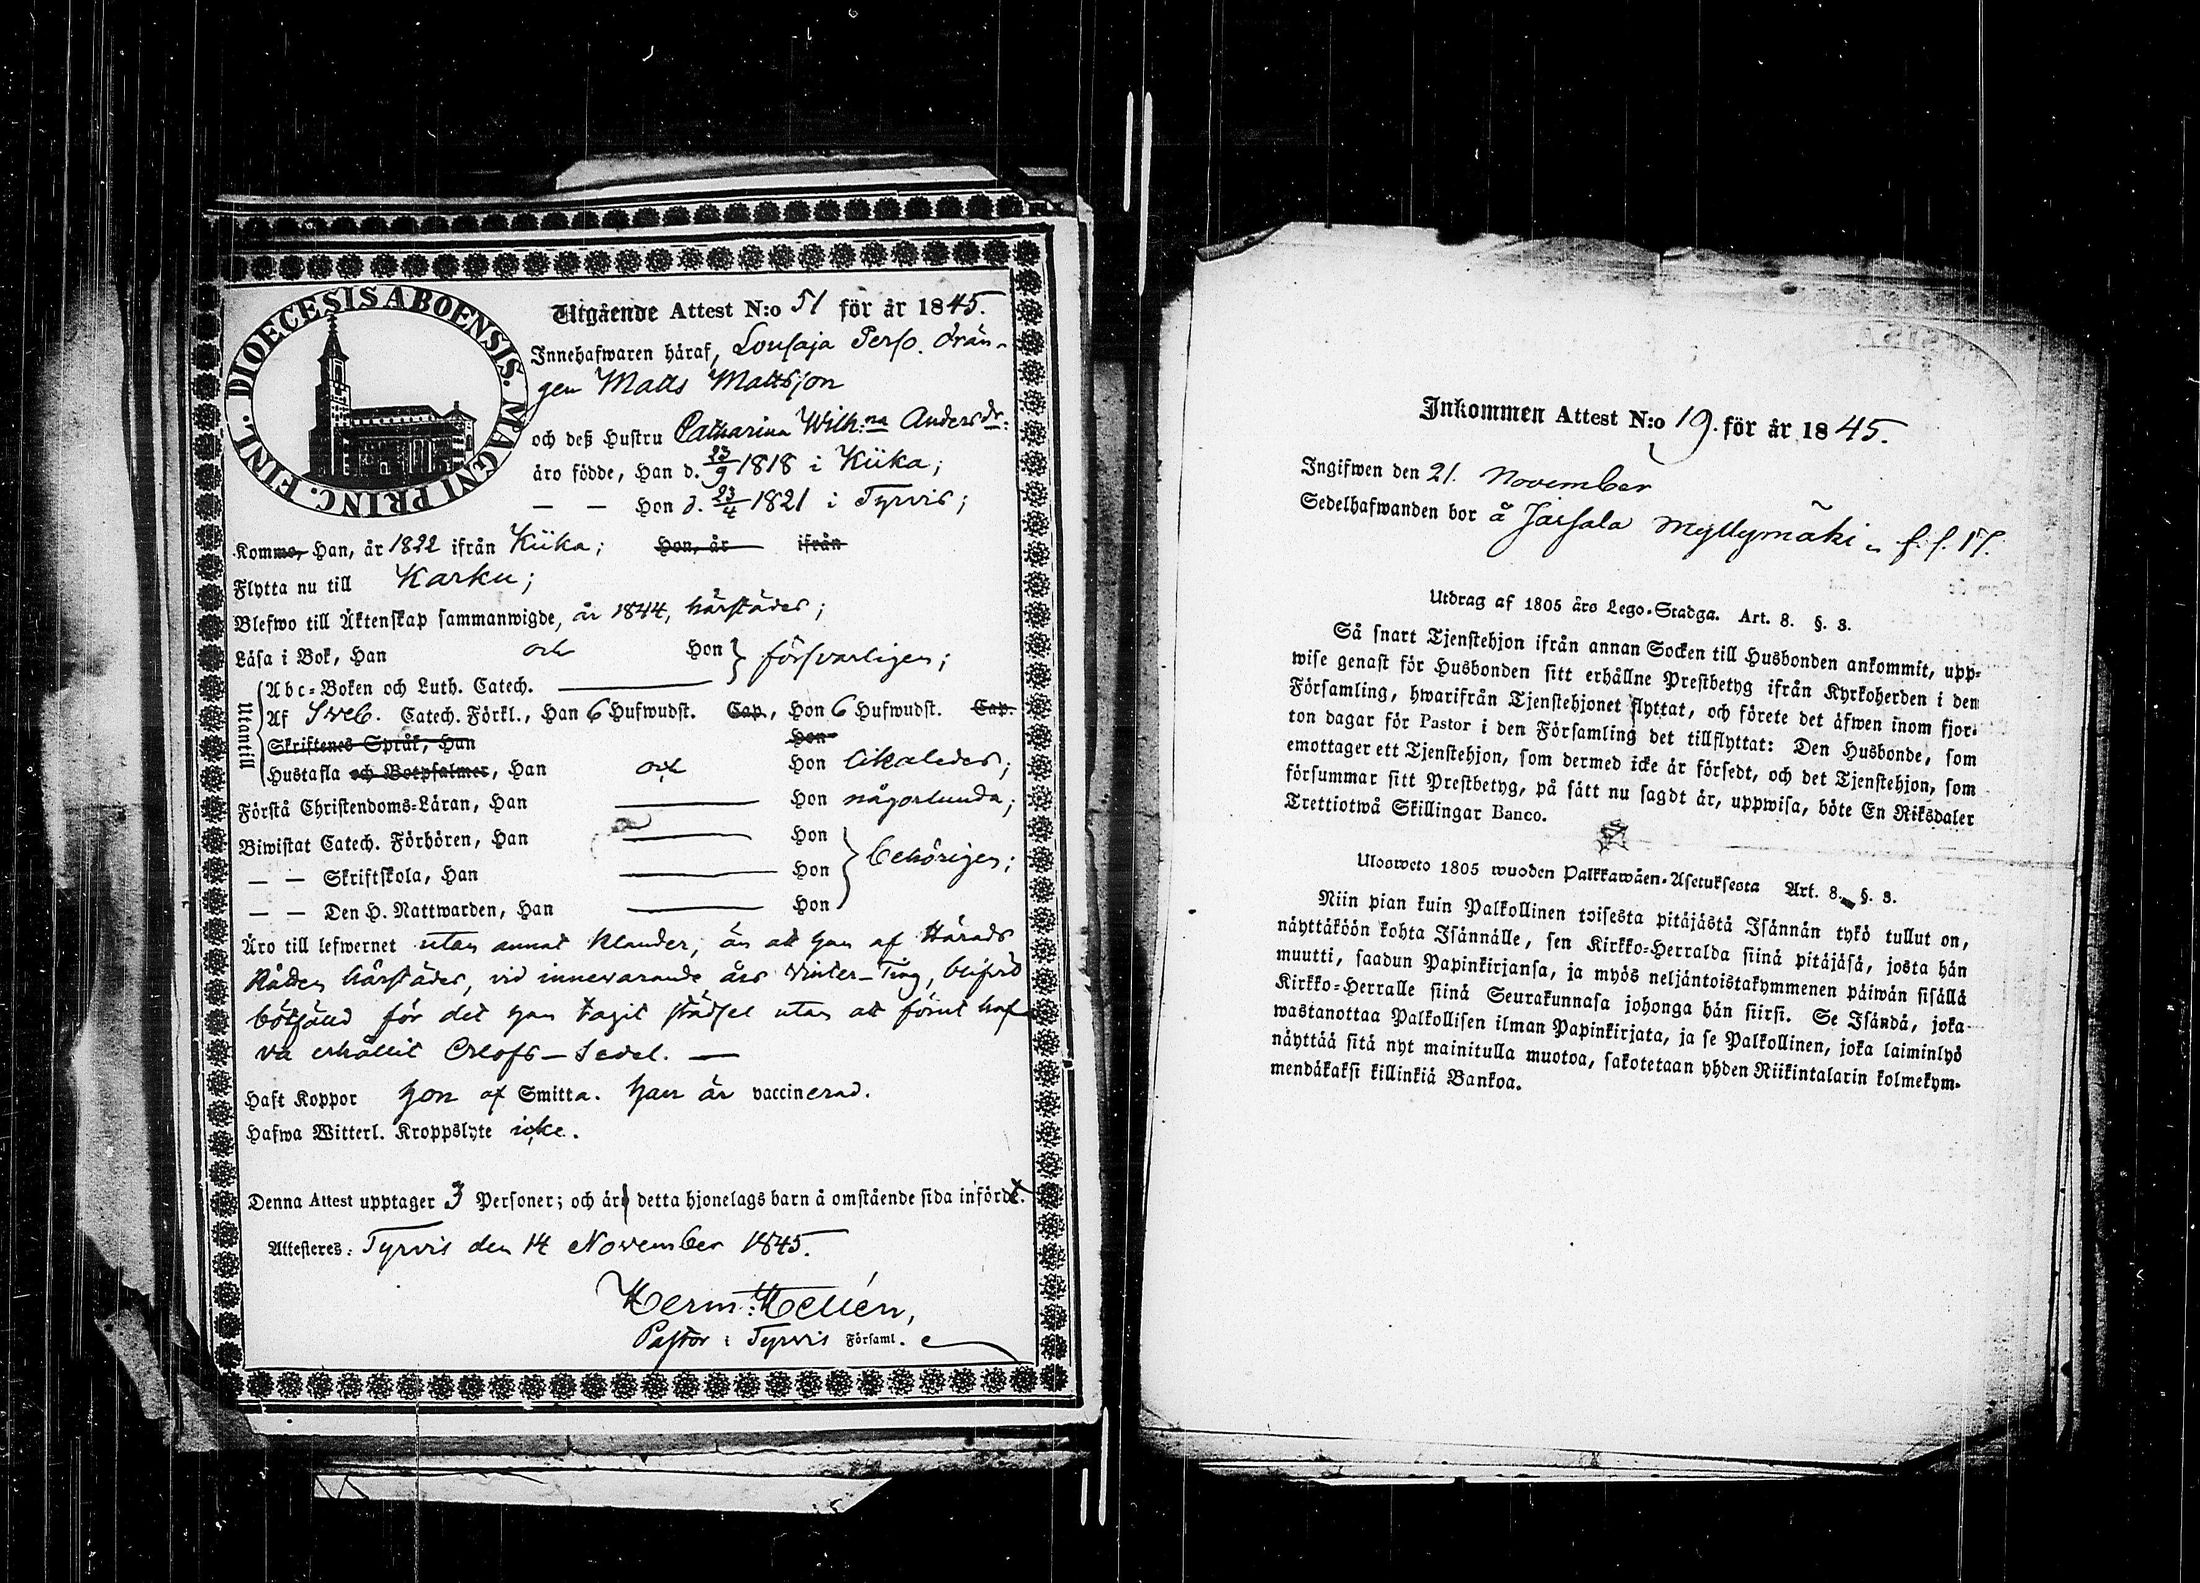 DIOECESIS ABOENSIS. MAGNI PRINC. FINL.
Utgående Attest N:o 51 för år 1845.
Innehafwaren häraf, Lousaja Perso. Drän-
gen Matts Mattsson
och deß Hustru Catharina Wilh:na Andersdr.
äro födde, Han d. 23/9 1818 i Kiika;
— — Hon d. 23/4 1821 i Tyrvis;
Kommo, Han, år 1822 ifrån Kiika; Hon, år ifrån
Flytta nu till Karku;
Blefwo till Äktenskap sammanwigde, år 1844, härstädes;
Läsa i Bok, Han och Hon försvarligen;
Utantill
Abc-Boken och Luth. Catech.
Af Sveb. Catech. Förkl., Han 6 Hufwudst. Cap., Hon 6 Hufwudst. Cap.
Skriftenes Språk, Han Hon
Hustafla och Botpsalmer, Han och Hon likaledes;
Förstå Christendoms-Läran, Han Hon någorlunda;
Biwistat Catech. Förhören, Han Hon
— — Skriftskola, Han Hon behörigen;
— — Den H. Nattwarden, Han Hon
Äro till lefwernet utan annat klander, än att han af Härads
Rätten härstädes, vid innevarande års Vinter-Ting, blifvit
bötfälld för det han tagit städsel utan att förut haf-
va erhållit Orlofs-Sedel. —
Haft Koppor hon af Smitta. han är vaccinerad.
Hafwa Witterl. Kroppslyte icke.
Denna Attest upptager 3 Personer; och äro detta hjonelags barn å omstående sida infördt.
Attesteres: Tyrvis den 14 November 1845.
Herm: Hellén,
Pastor i Tyrvis Församl.
Inkommen Attest N:o 19. för år 1845.
Ingifwen den 21. November
Sedelhafwanden bor å Jarsala Myllymäki
Utdrag af 1805 års Lego-Stadga. Art. 8. §. 3.
Så snart Tjenstehjon ifrån annan Socken till Husbonden ankommit, upp-
wise genast för Husbonden sitt erhållne Prestbetyg ifrån Kyrkoherden i den
Församling, hwarifrån Tjenstehjonet flyttat, och förete det äfwen inom fjor-
ton dagar för Pastor i den Församling det tillflyttat: Den Husbonde, som
emottager ett Tjenstehjon, som dermed icke är försedt, och det Tjenstehjon, som
försummar sitt Prestbetyg, på sätt nu sagdt är, uppwisa, böte En Riksdaler
Trettiotwå Skillingar Banco.
Ulosweto 1805 wuoden Palkkawäen-Asetuksesta Art. 8. §. 3.
Niin pian kuin Palkollinen toisesta pitäjästä Isännän tykö tullut on,
näyttäköön kohta Isännälle, sen Kirkko-Herralda siinä pitäjäsä, josta hän
muutti, saadun Papinkirjansa, ja myös neljäntoistakymmenen päiwän sisällä
Kirkko-Herralle siinä Seurakunnasa johonga hän siirsi. Se Isändä, joka
wastanottaa Palkollisen ilman Papinkirjata, ja se Palkollinen, joka laiminlyö
näyttää sitä nyt mainitulla muotoa, sakotetaan yhden Riikintalarin kolmekym-
mendäkaksi killinkiä Bankoa.